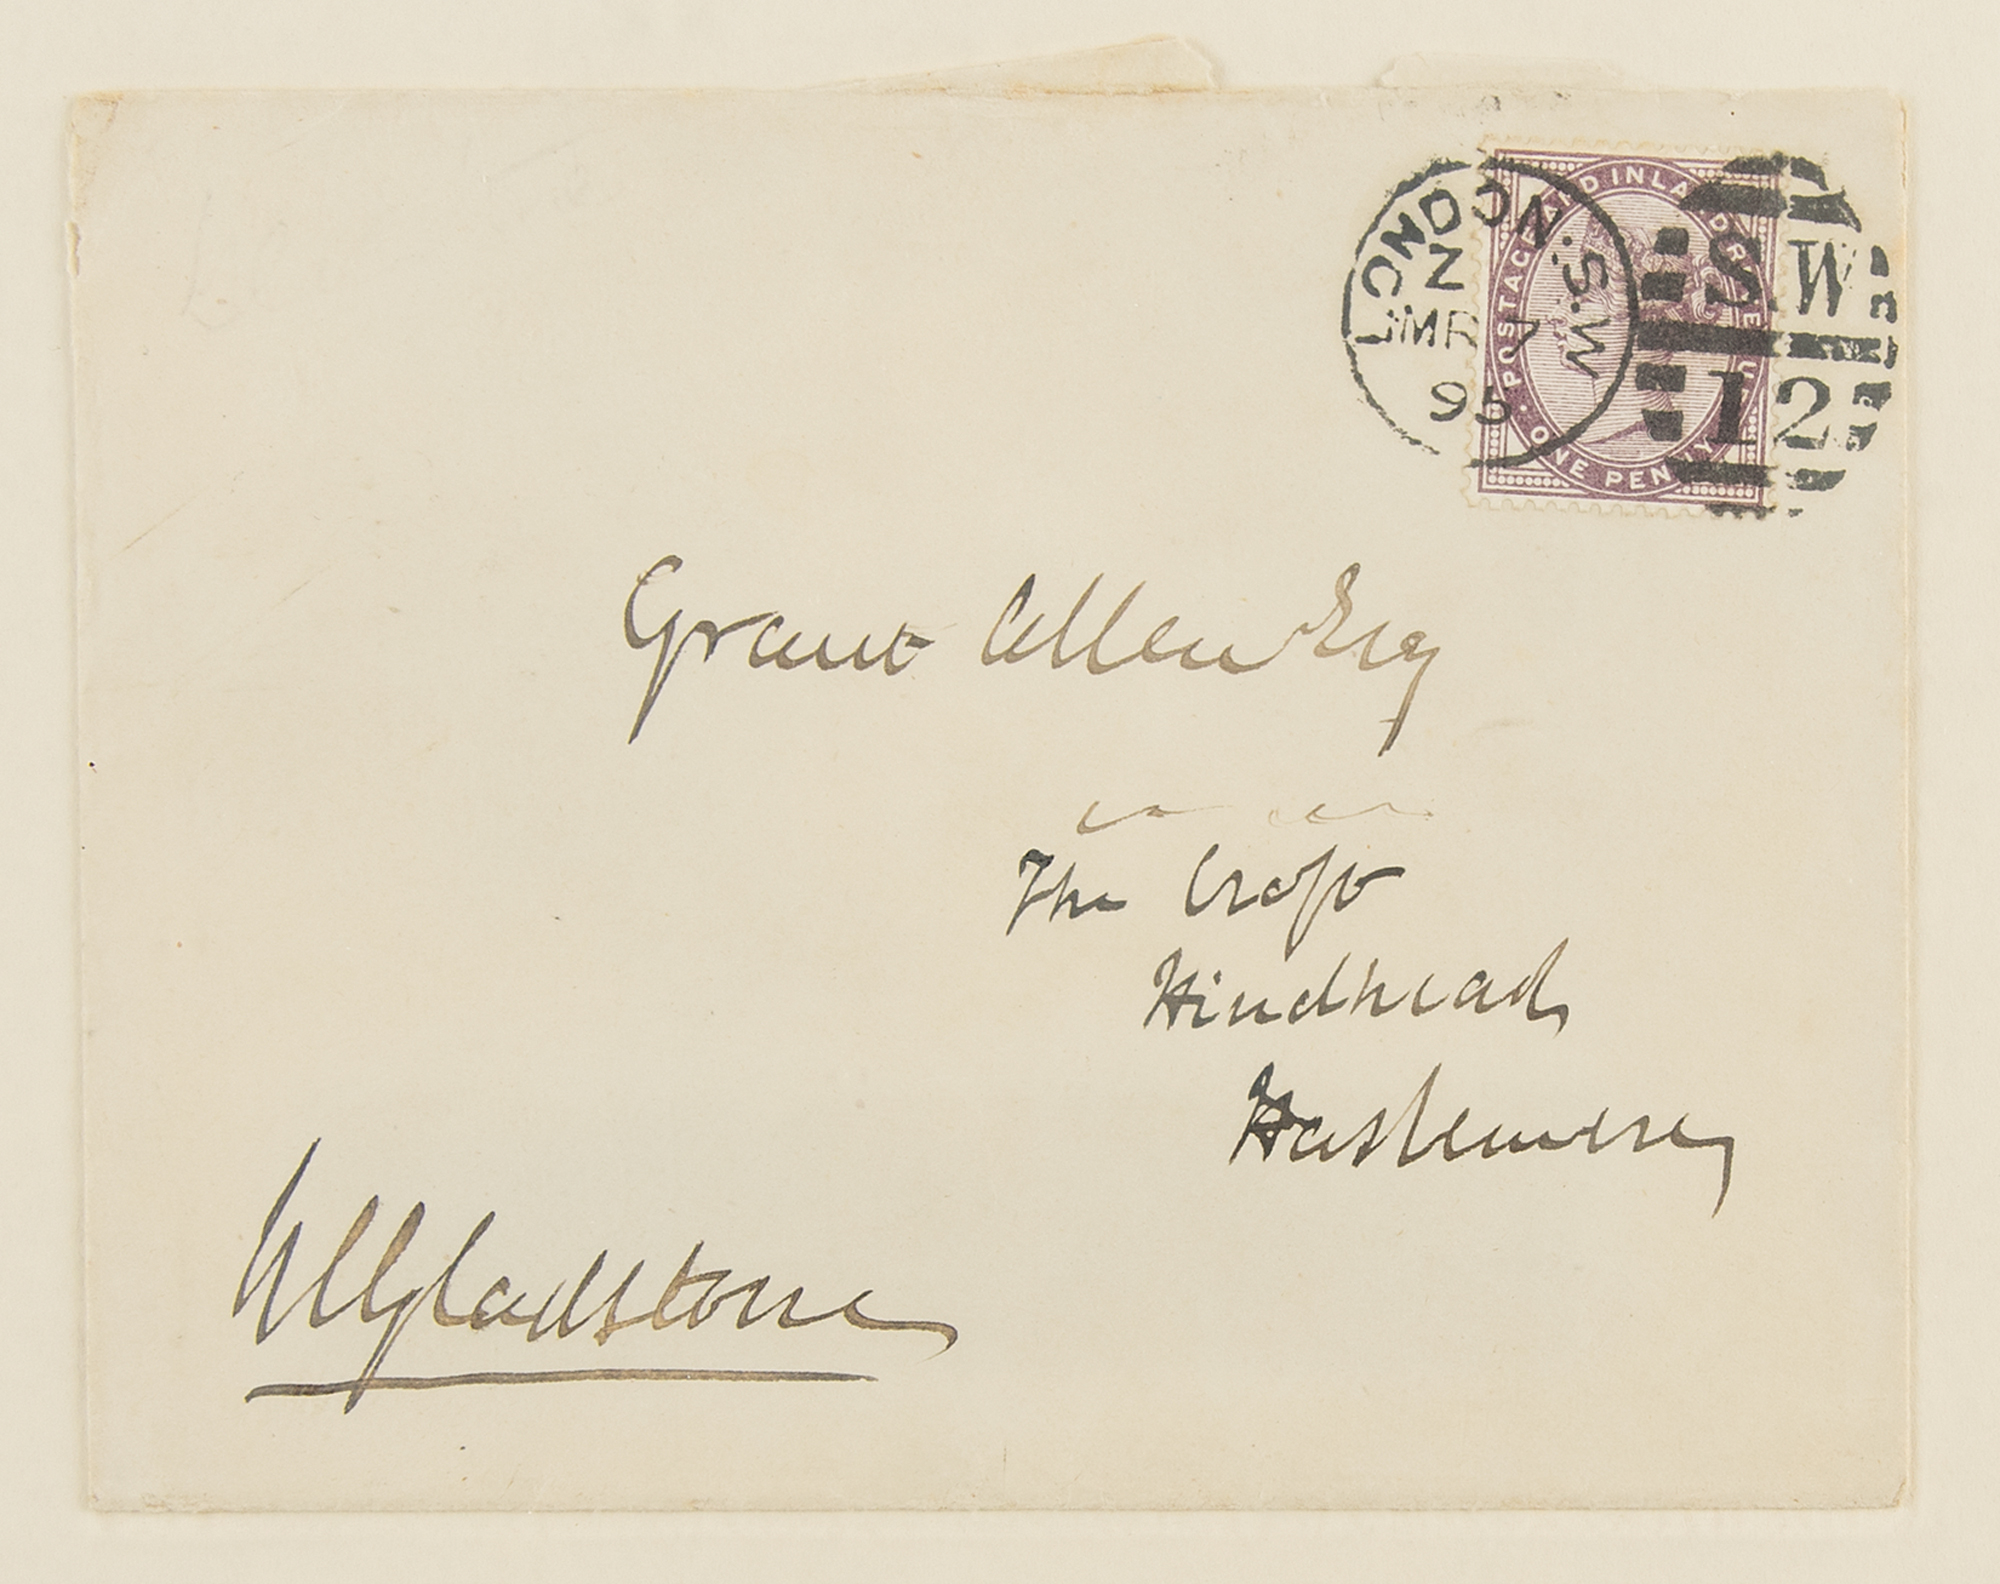 LONDON. S.W
Z
MR 7
95
S.W.
12
POSTAGE AND INLAND REVENUE
ONE PENNY
Grant Allen Esq
The Croft
Hindhead
Haslemere
WEGladstone